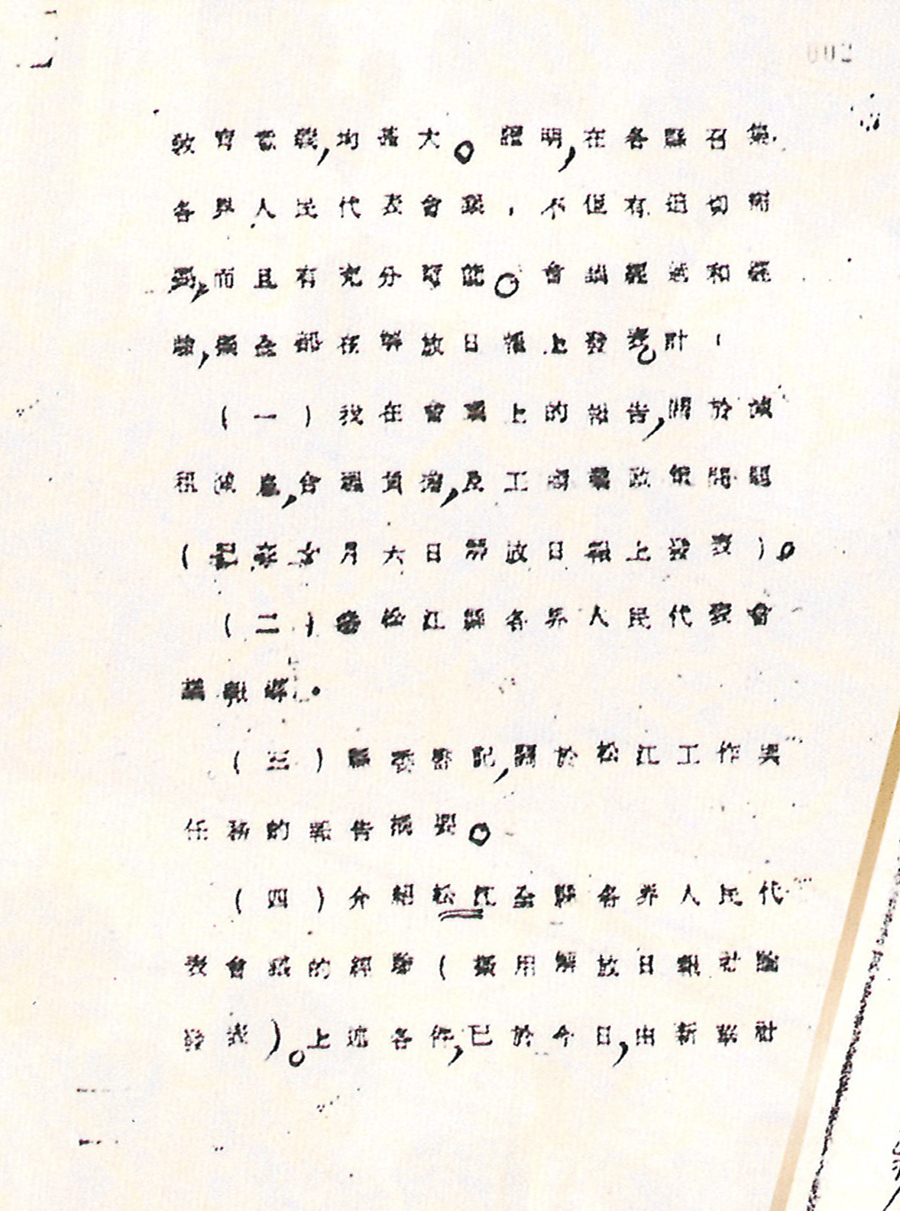 002
教育意義,均甚大。證明,在各縣召集
各界人民代表會議,不但有迫切需
要,而且有充分可能。會議經過和經
驗,擬全部在解放日報上發表。計:
(一)我在會議上的報告,關於減
租減息,合理負擔,及工商業政策問題
(已在 月六日解放日報上發表)。
(二)松江縣各界人民代表會
議報導。
(三)縣委書記,關於松江工作與
任務的報告摘要。
(四)介紹松江全縣各界人民代
表會議的經驗(擬用解放日報社論
發表)。上述各件,已於今日,由新華社